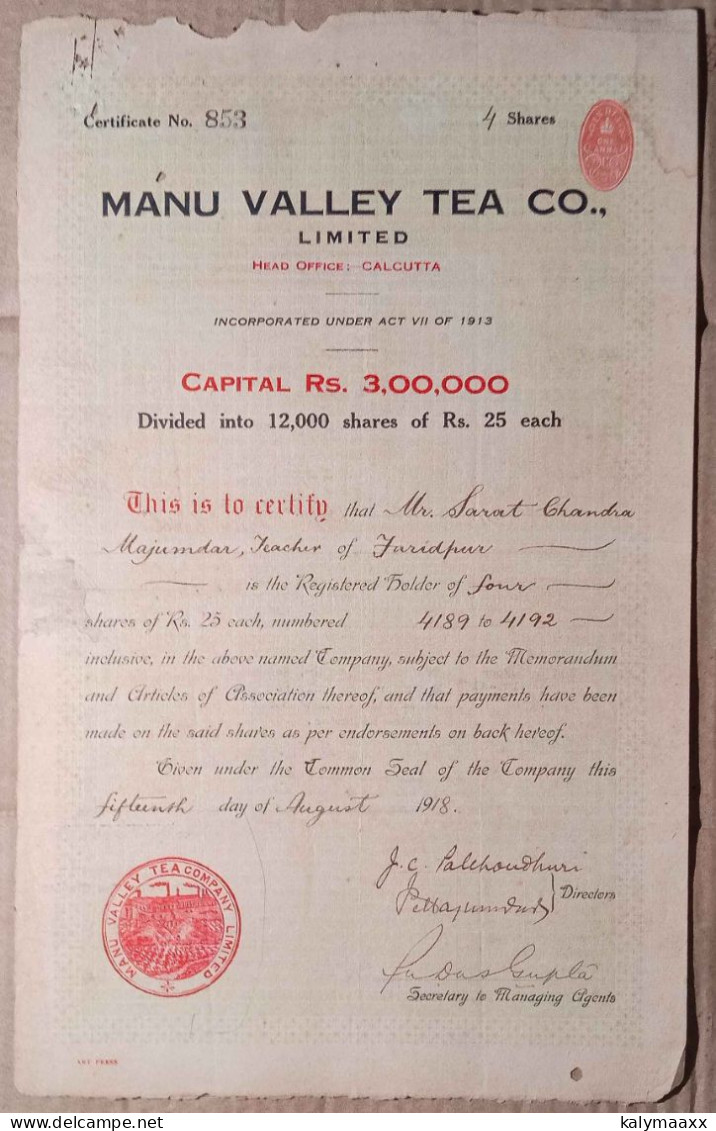 Certificate No. 853 4 Shares
ONE ANNA
MANU VALLEY TEA CO.,
LIMITED
HEAD OFFICE: CALCUTTA
INCORPORATED UNDER ACT VII OF 1913
CAPITAL Rs. 3,00,000
Divided into 12,000 shares of Rs. 25 each
This is to certify that Mr. Sarat Chandra
Majumdar, Teacher of Faridpur
is the Registered Holder of four
shares of Rs. 25 each, numbered 4189 to 4192
inclusive, in the above named Company, subject to the Memorandum
and Articles of Association thereof, and that payments have been
made on the said shares as per endorsements on back hereof.
Given under the Common Seal of the Company this
fifteenth day of August 1918.
J. C. Palchoudhuri
Directors
Das Gupta
Secretary to Managing Agents
MANU VALLEY TEA COMPANY LIMITED
ART PRESS
delcampe.net
kalymaaxx